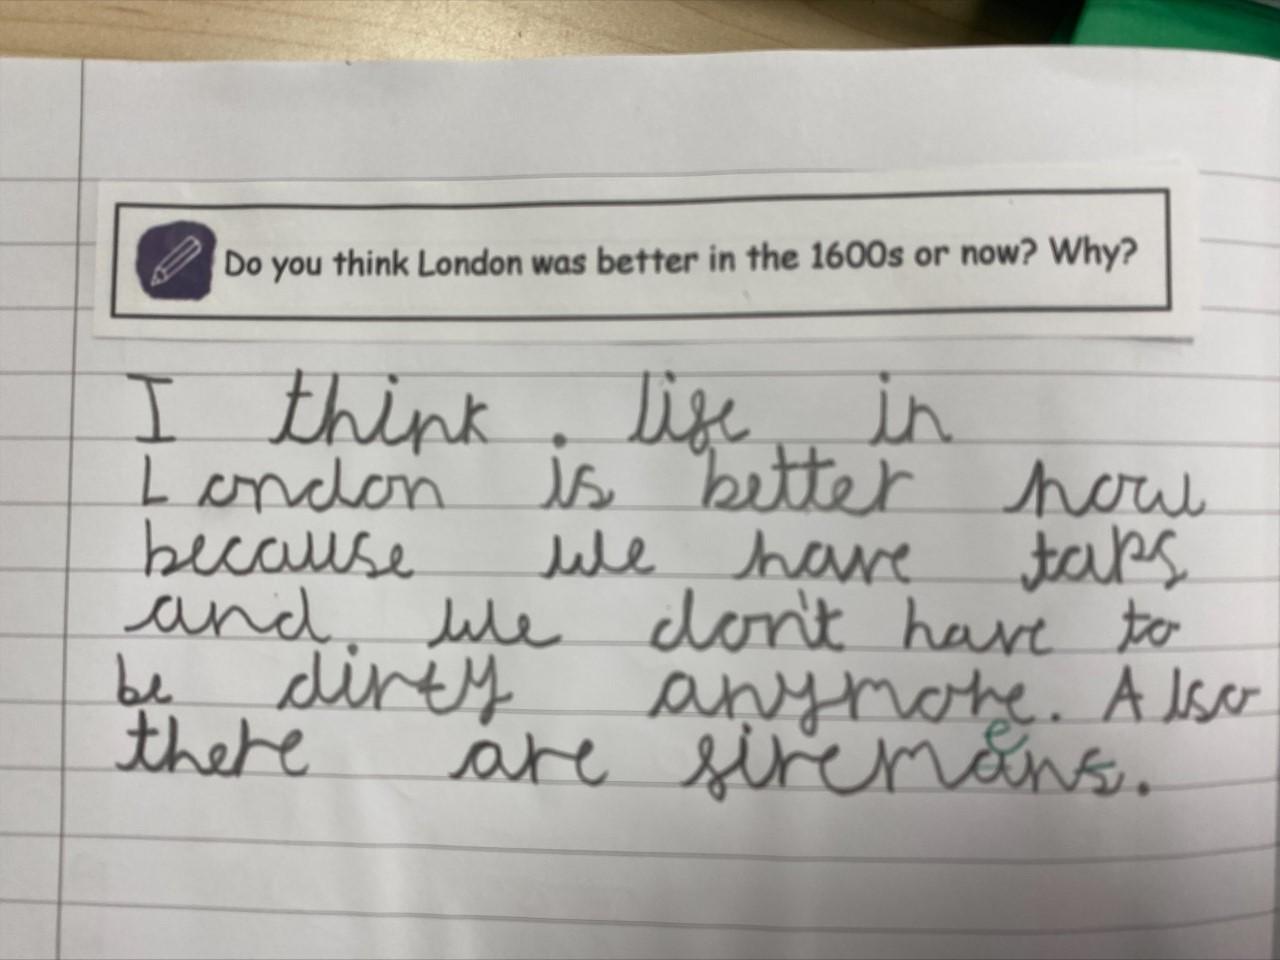 Do you think London was better in the 1600s or now? Why?
I think . life in
London is better now
because we have taps
and we don't have to
be dirty anymore. Also
there are firemans.
e